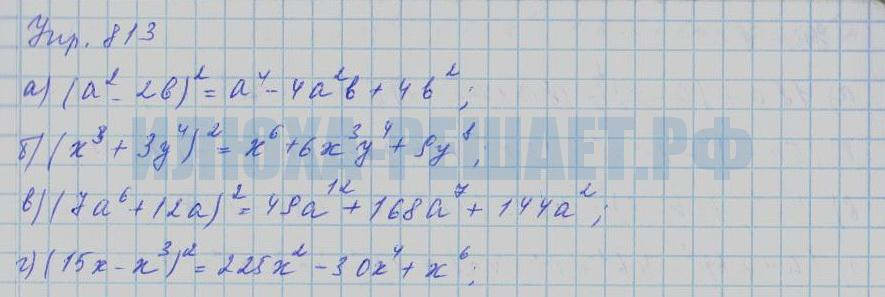 Упр. 813
а) (a² - 2b)² = a⁴ - 4a²b + 4b²;
б) (x³ + 3y⁴)² = x⁶ + 6x³y⁴ + 9y⁸;
в) (7a⁶ + 12a)² = 49a¹² + 168a⁷ + 144a²;
г) (15x - x³)² = 225x² - 30x⁴ + x⁶;
ИЛЮХА-РЕШАЕТ.РФ